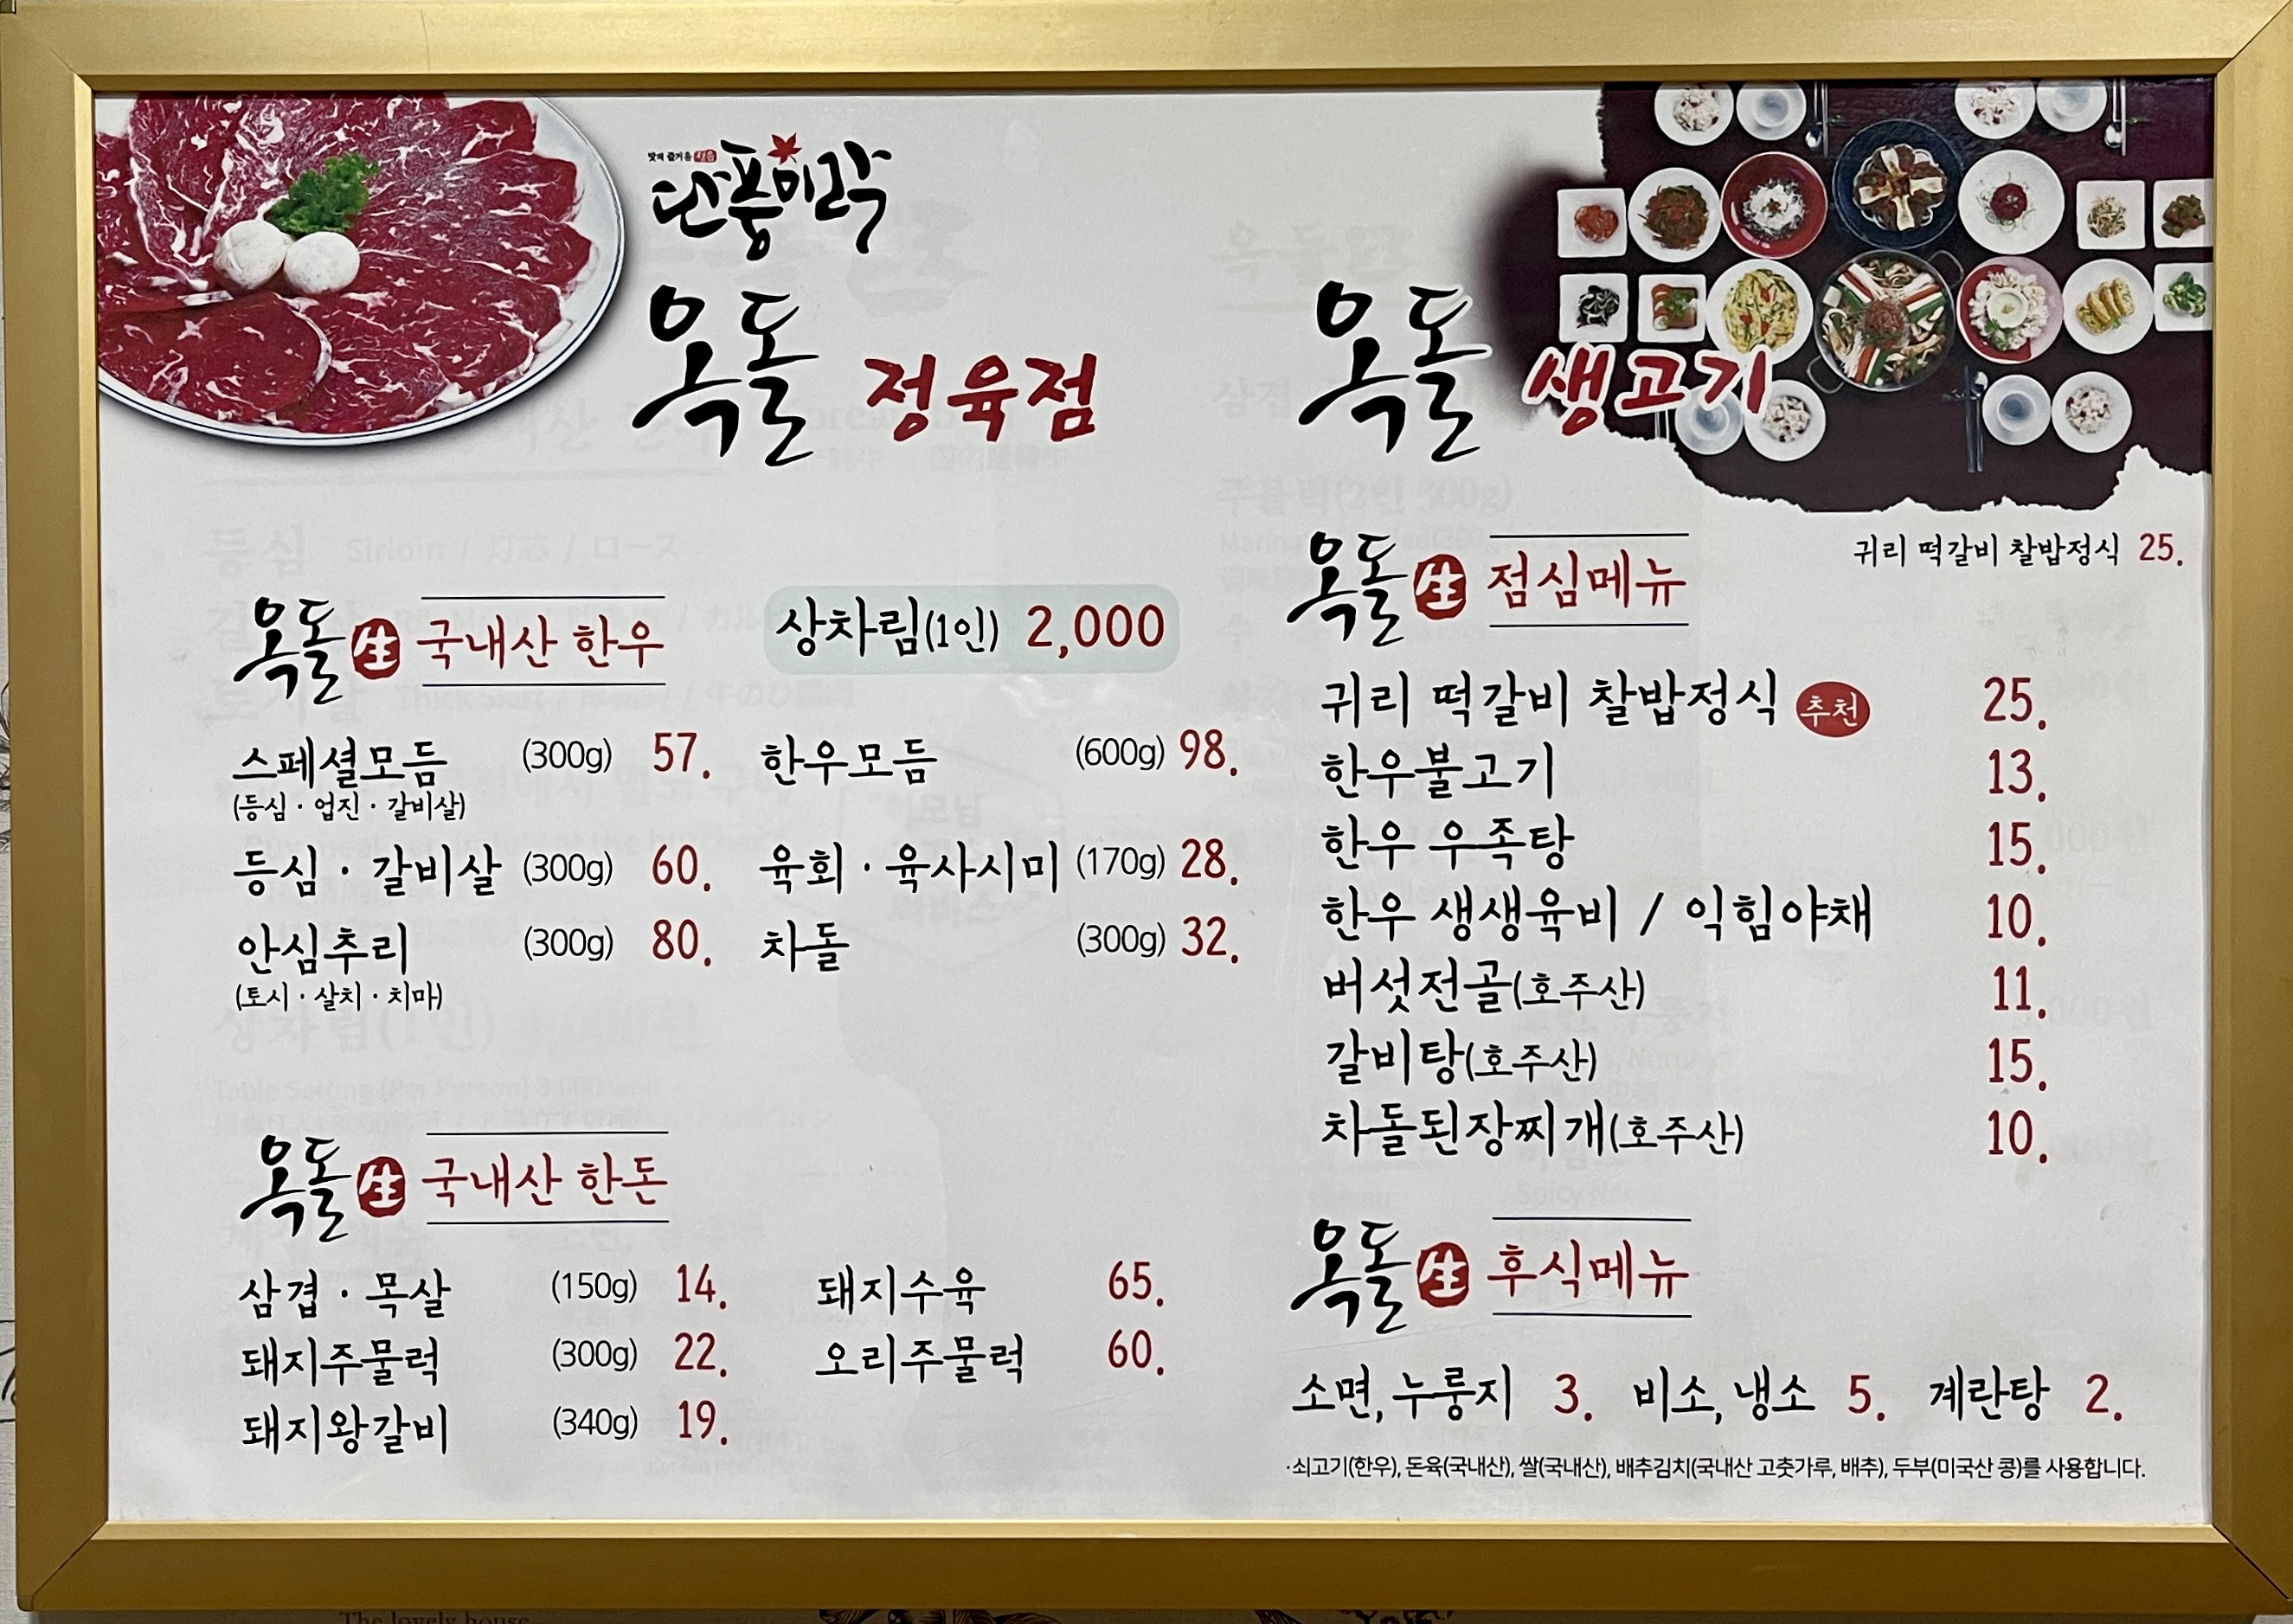 맛의 즐거움
단풍미락
옥돌 정육점
옥돌 生 국내산 한우
상차림(1인) 2,000
스페셜모듬 (300g) 57. 한우모듬 (600g) 98.
(등심 · 업진 · 갈비살)
등심 · 갈비살 (300g) 60. 육회 · 육사시미 (170g) 28.
안심추리 (300g) 80. 차돌 (300g) 32.
(토시 · 살치 · 치마)
옥돌 生 국내산 한돈
삼겹 · 목살 (150g) 14. 돼지수육 65.
돼지주물럭 (300g) 22. 오리주물럭 60.
돼지왕갈비 (340g) 19.
옥돌 생고기
귀리 떡갈비 찰밥정식 25.
옥돌 生 점심메뉴
귀리 떡갈비 찰밥정식 추천 25.
한우불고기 13.
한우 우족탕 15.
한우 생생육비 / 익힘야채 10.
버섯전골(호주산) 11.
갈비탕(호주산) 15.
차돌된장찌개(호주산) 10.
옥돌 生 후식메뉴
소면, 누룽지 3. 비소, 냉소 5. 계란탕 2.
·쇠고기(한우), 돈육(국내산), 쌀(국내산), 배추김치(국내산 고춧가루, 배추), 두부(미국산 콩)를 사용합니다.
The lovely house